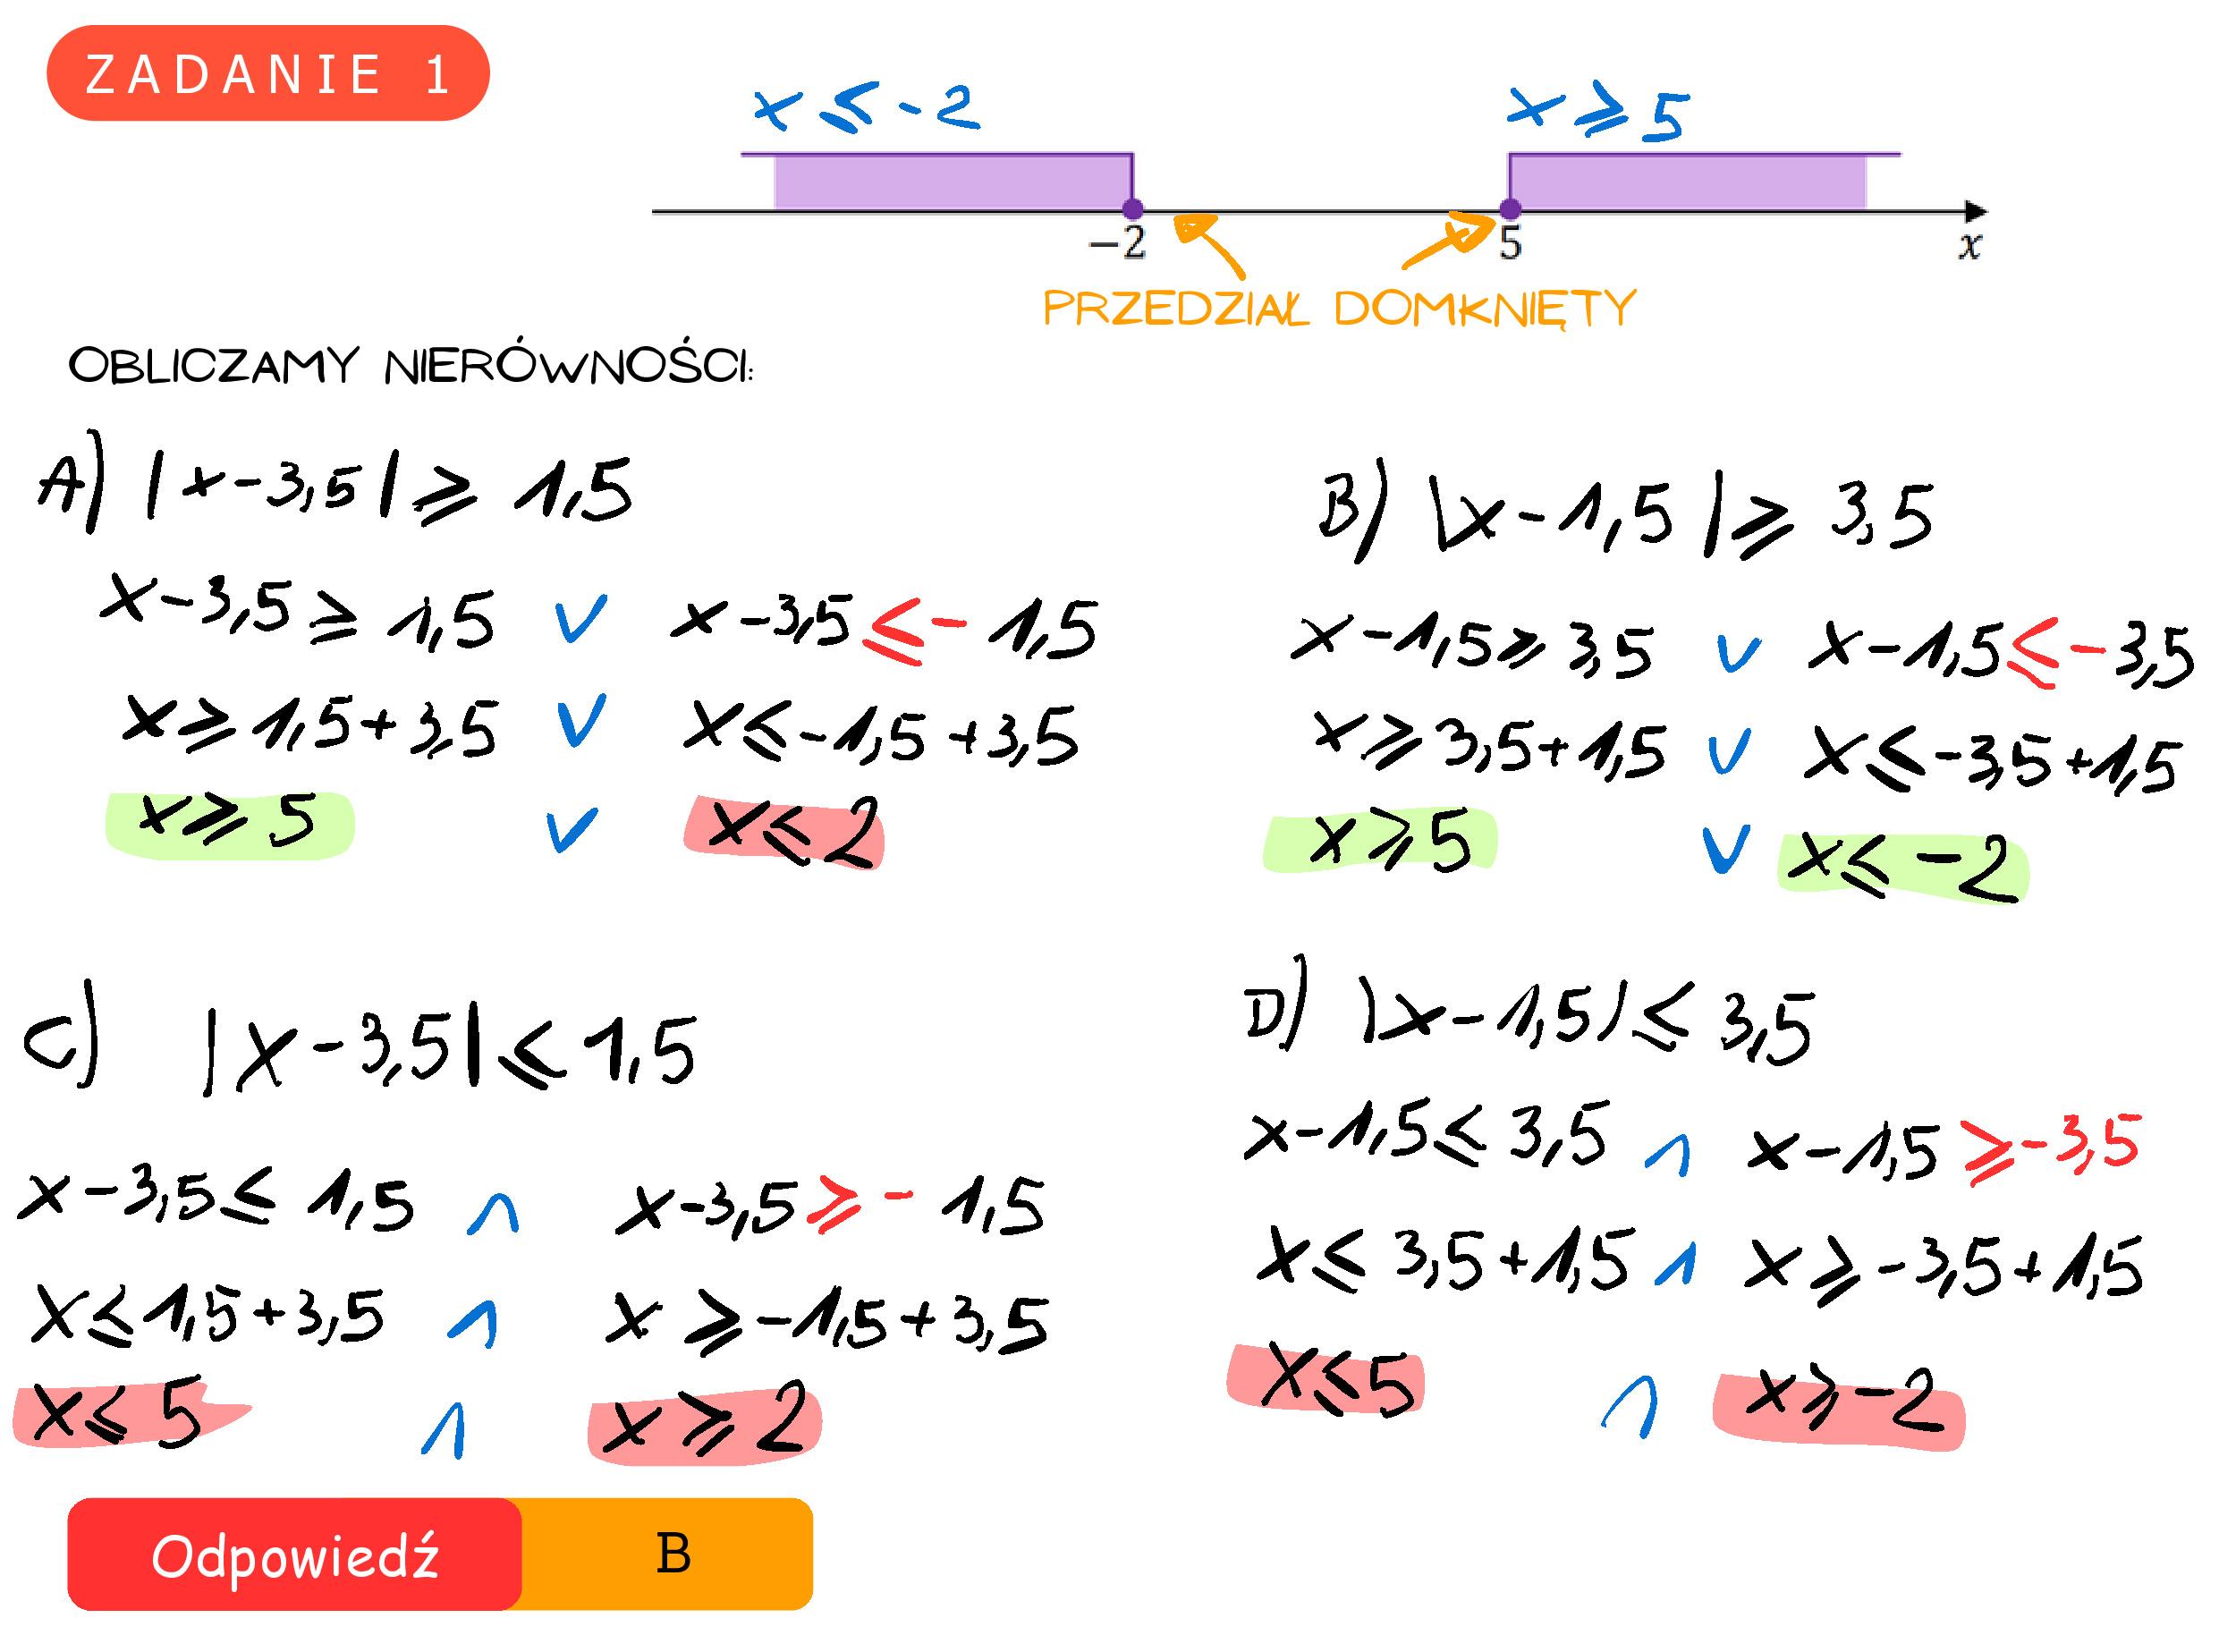 ZADANIE 1
x ≤ -2 x ≥ 5
−2 5 x
PRZEDZIAŁ DOMKNIĘTY
OBLICZAMY NIERÓWNOŚCI:
A) |x-3,5| ≥ 1,5
x-3,5 ≥ 1,5 ∨ x-3,5 ≤ -1,5
x ≥ 1,5+3,5 ∨ x ≤ -1,5+3,5
x ≥ 5 ∨ x ≤ 2
B) |x-1,5| ≥ 3,5
x-1,5 ≥ 3,5 ∨ x-1,5 ≤ -3,5
x ≥ 3,5+1,5 ∨ x ≤ -3,5+1,5
x ≥ 5 ∨ x ≤ -2
C) |x-3,5| ≤ 1,5
x-3,5 ≤ 1,5 ∧ x-3,5 ≥ -1,5
x ≤ 1,5+3,5 ∧ x ≥ -1,5+3,5
x ≤ 5 ∧ x ≥ 2
D) |x-1,5| ≤ 3,5
x-1,5 ≤ 3,5 ∧ x-1,5 ≥ -3,5
x ≤ 3,5+1,5 ∧ x ≥ -3,5+1,5
x ≤ 5 ∧ x ≥ -2
Odpowiedź B